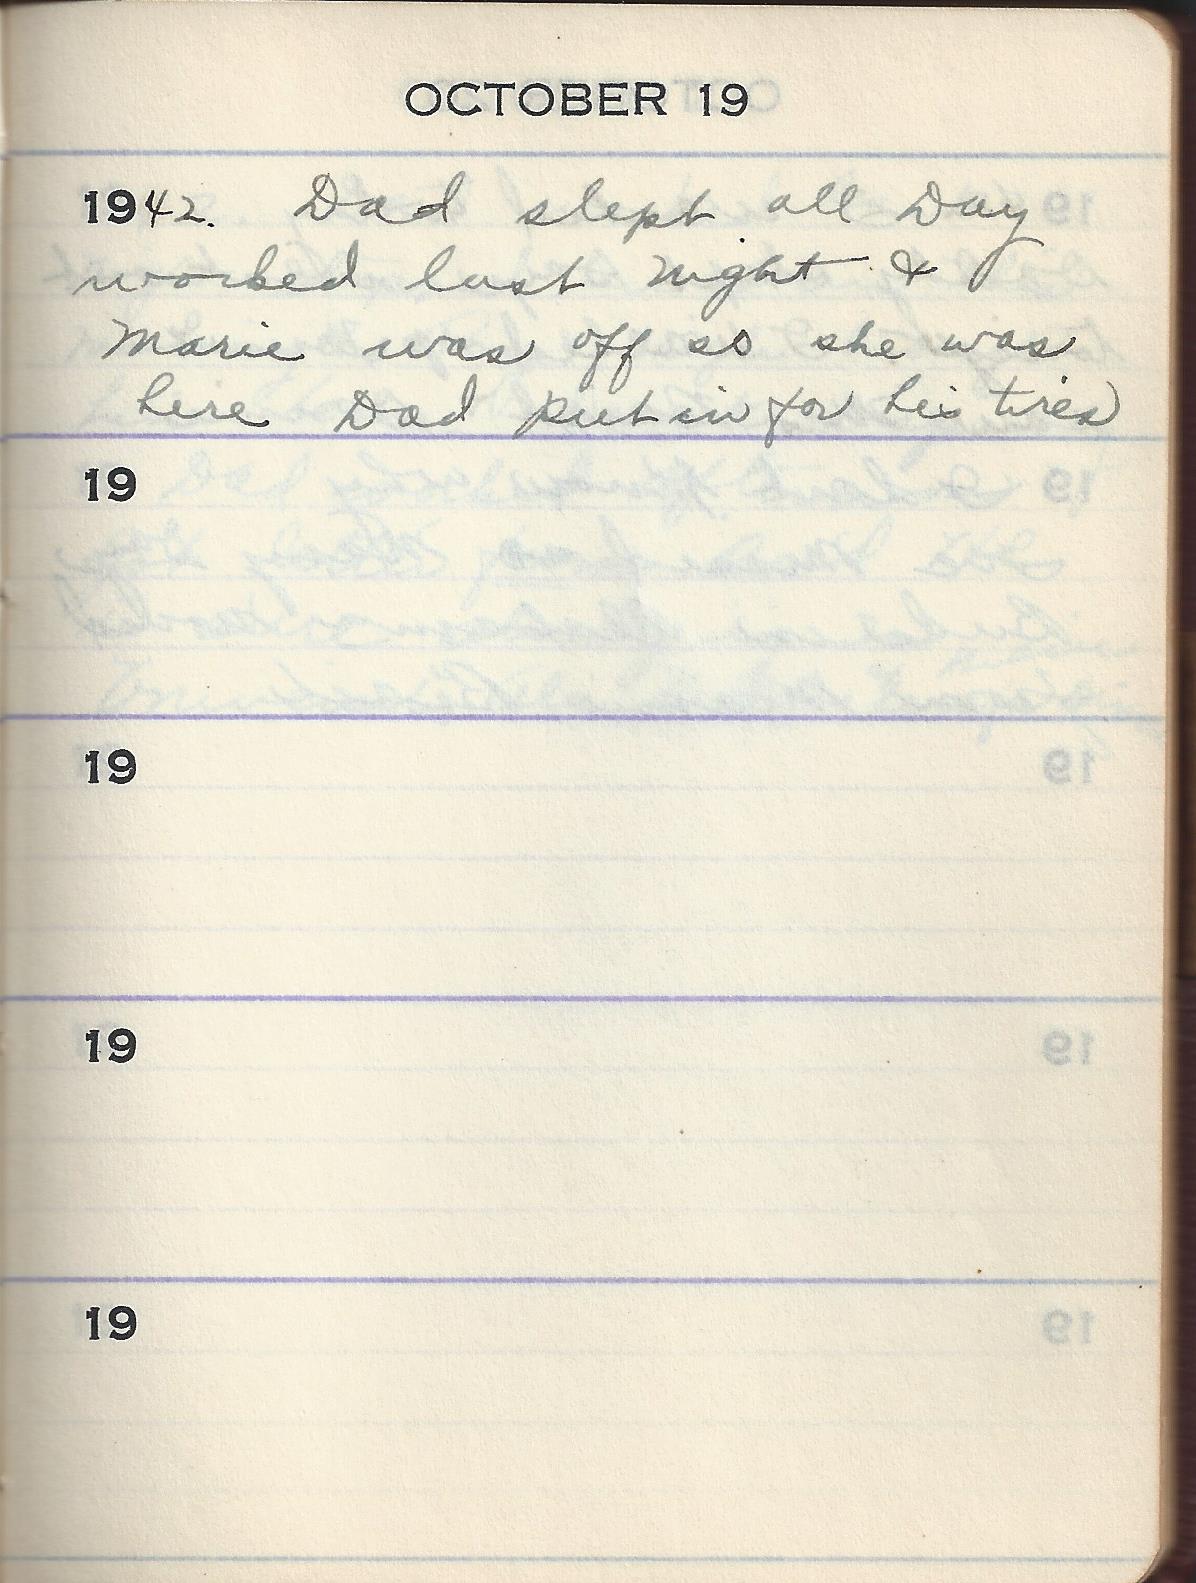 OCTOBER 19
1942. Dad slept all Day
worked last night &
Marie was off so she was
here Dad put in for his tires
19
19
19
19